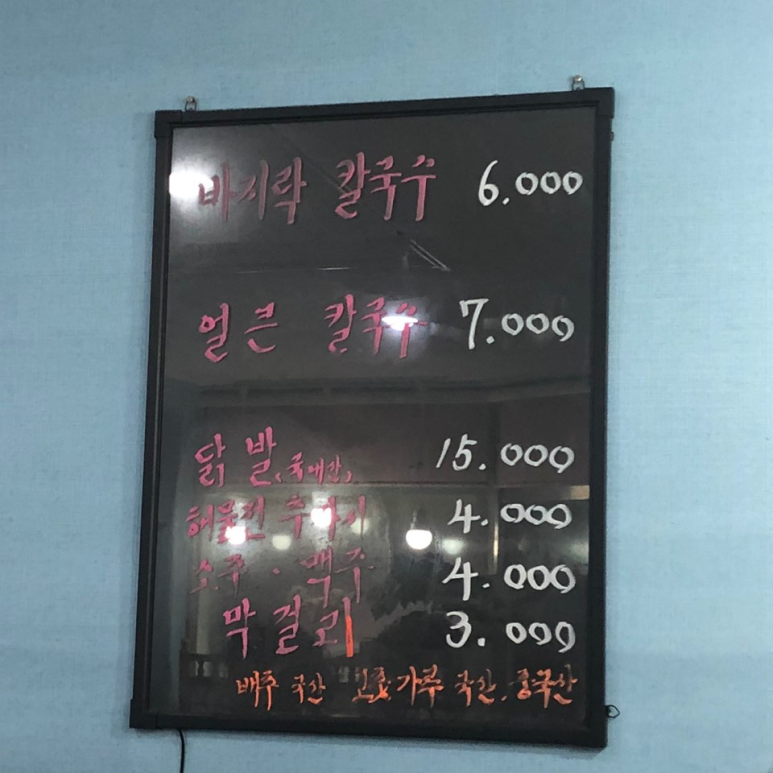 바지락 칼국수 6.000
얼큰 칼국수 7.000
닭발(국내산) 15.000
해물전 추가시 4.000
소주·맥주 4.000
막걸리 3.000
배추 국산 고추가루 국산, 중국산